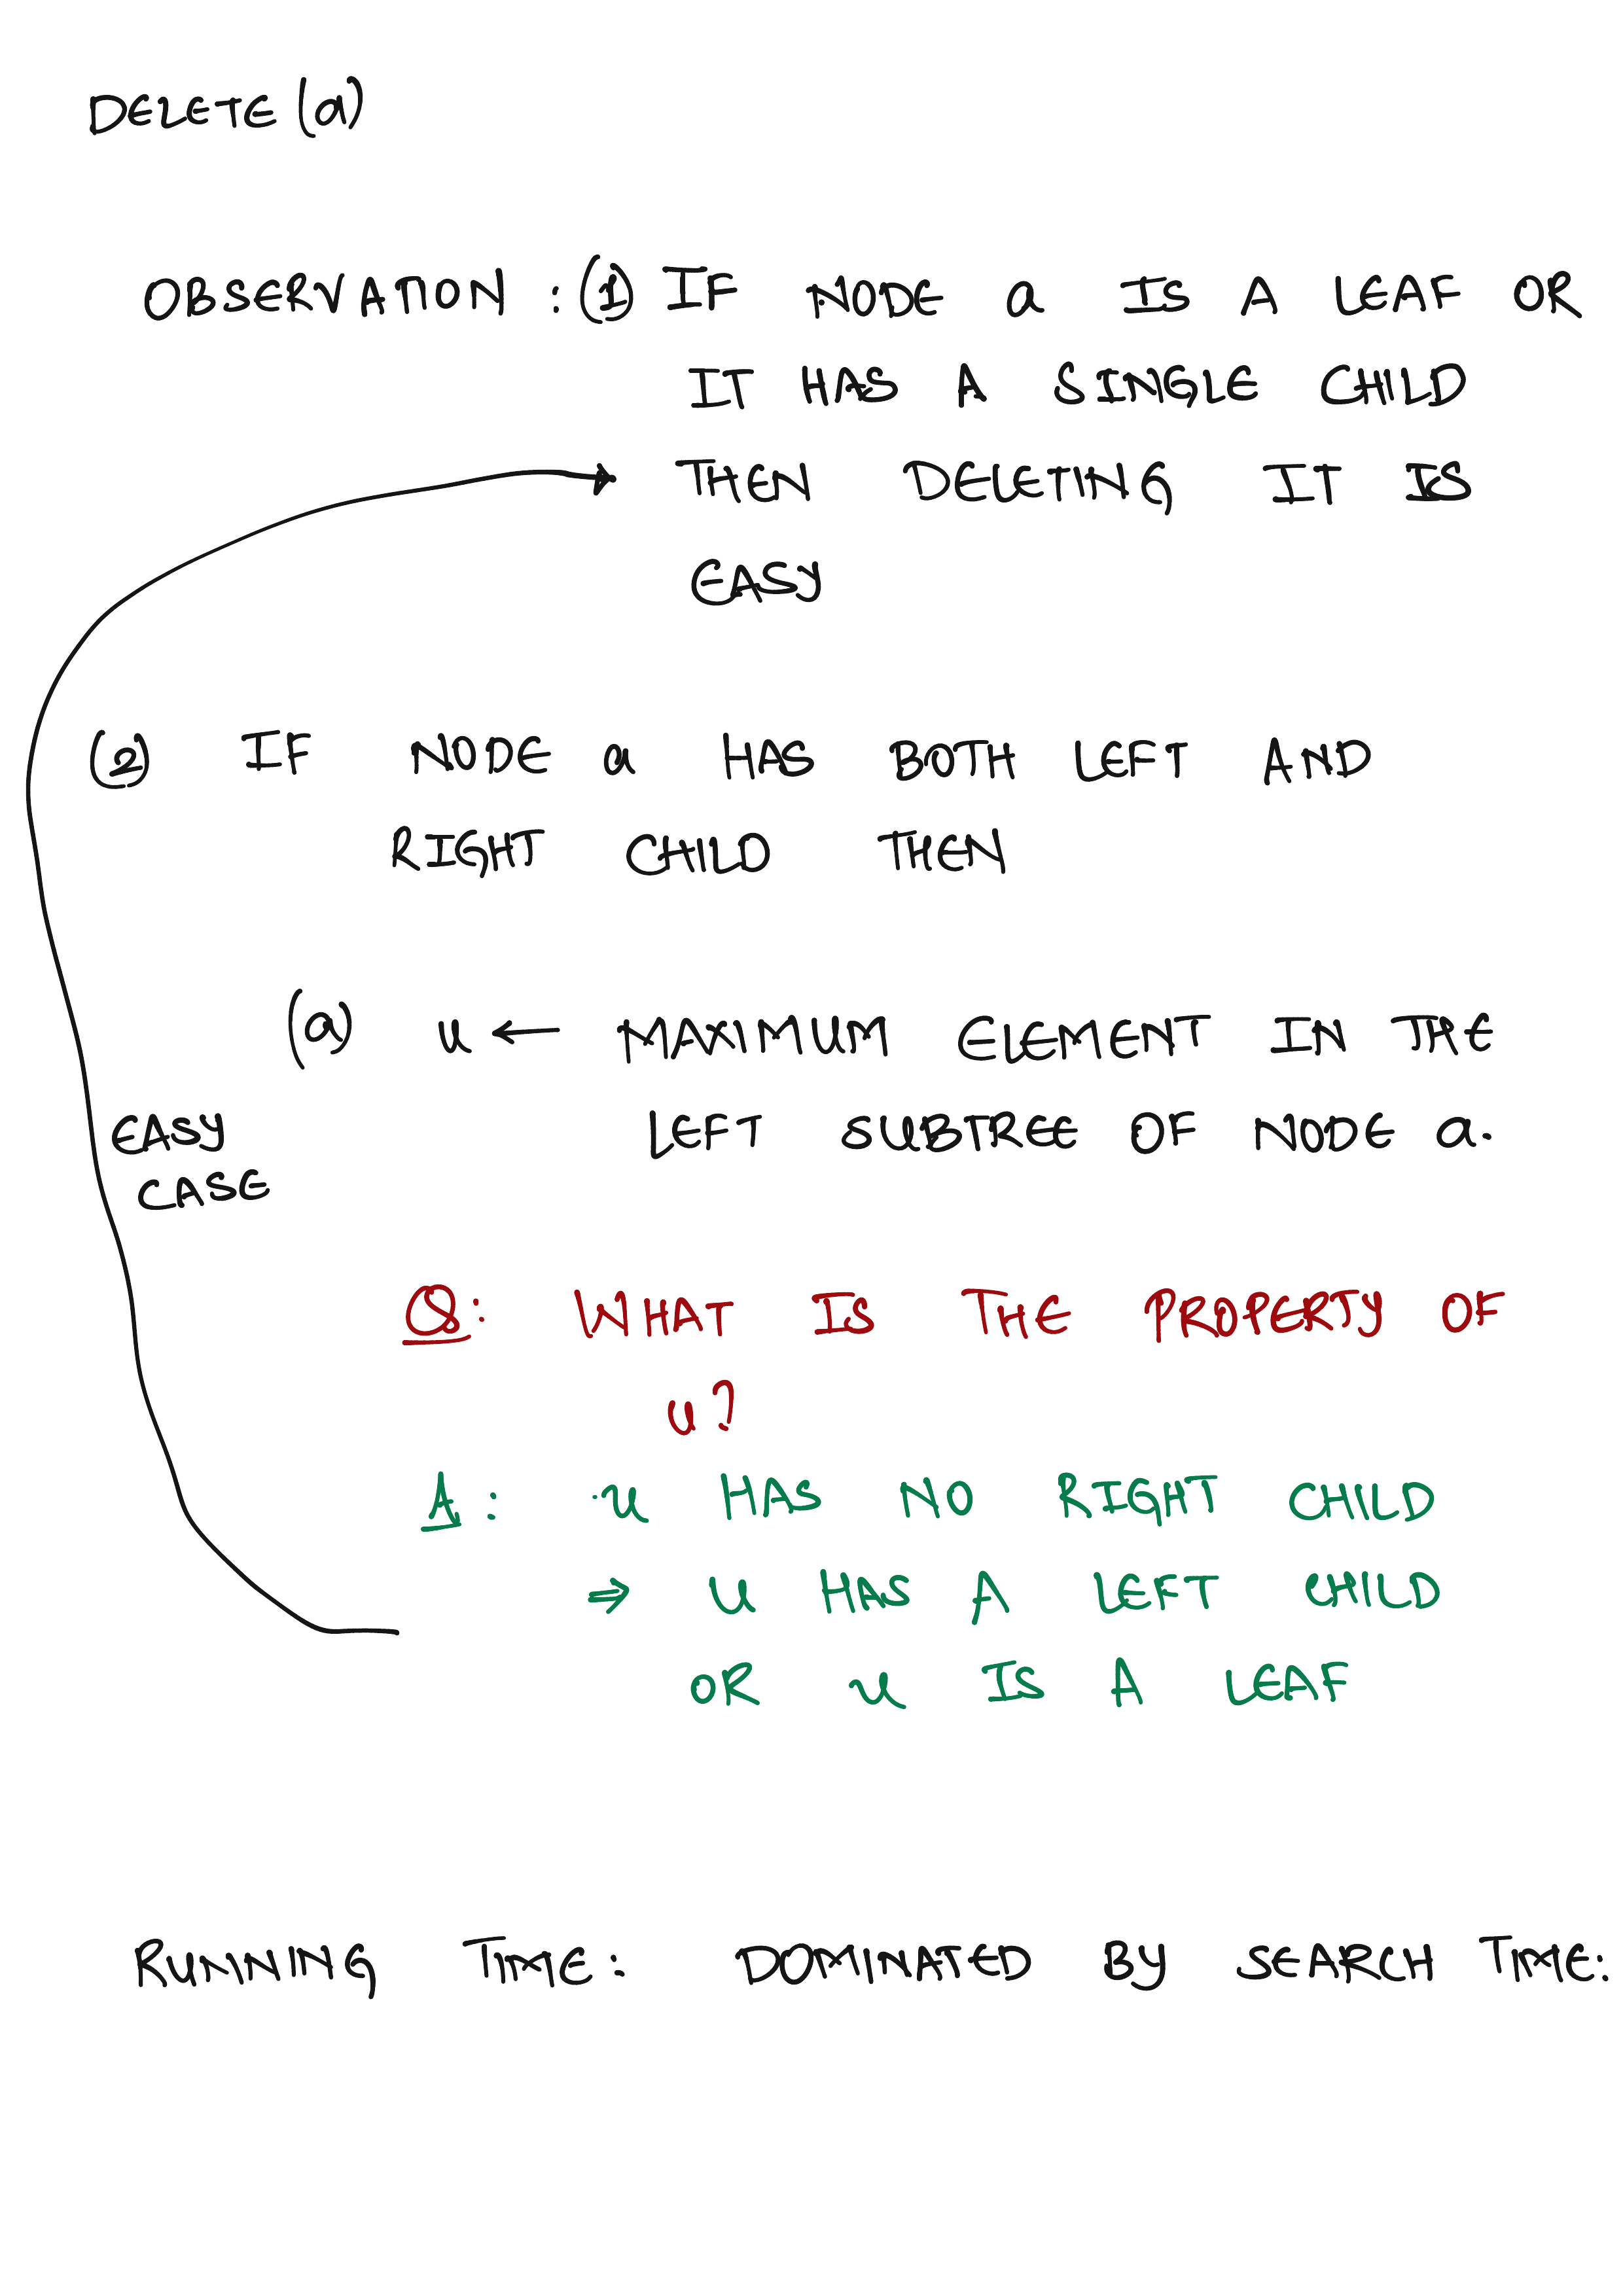 DELETE (a)
OBSERVATION : (1) IF NODE a IS A LEAF OR
IT HAS A SINGLE CHILD
THEN DELETING IT IS
EASY
(2) IF NODE a HAS BOTH LEFT AND
RIGHT CHILD THEN
(a) u ← MAXIMUM ELEMENT IN THE
LEFT SUBTREE OF NODE a.
EASY
CASE
Q: WHAT IS THE PROPERTY OF
u?
A: u HAS NO RIGHT CHILD
⇒ u HAS A LEFT CHILD
OR u IS A LEAF
RUNNING TIME: DOMINATED BY SEARCH TIME: